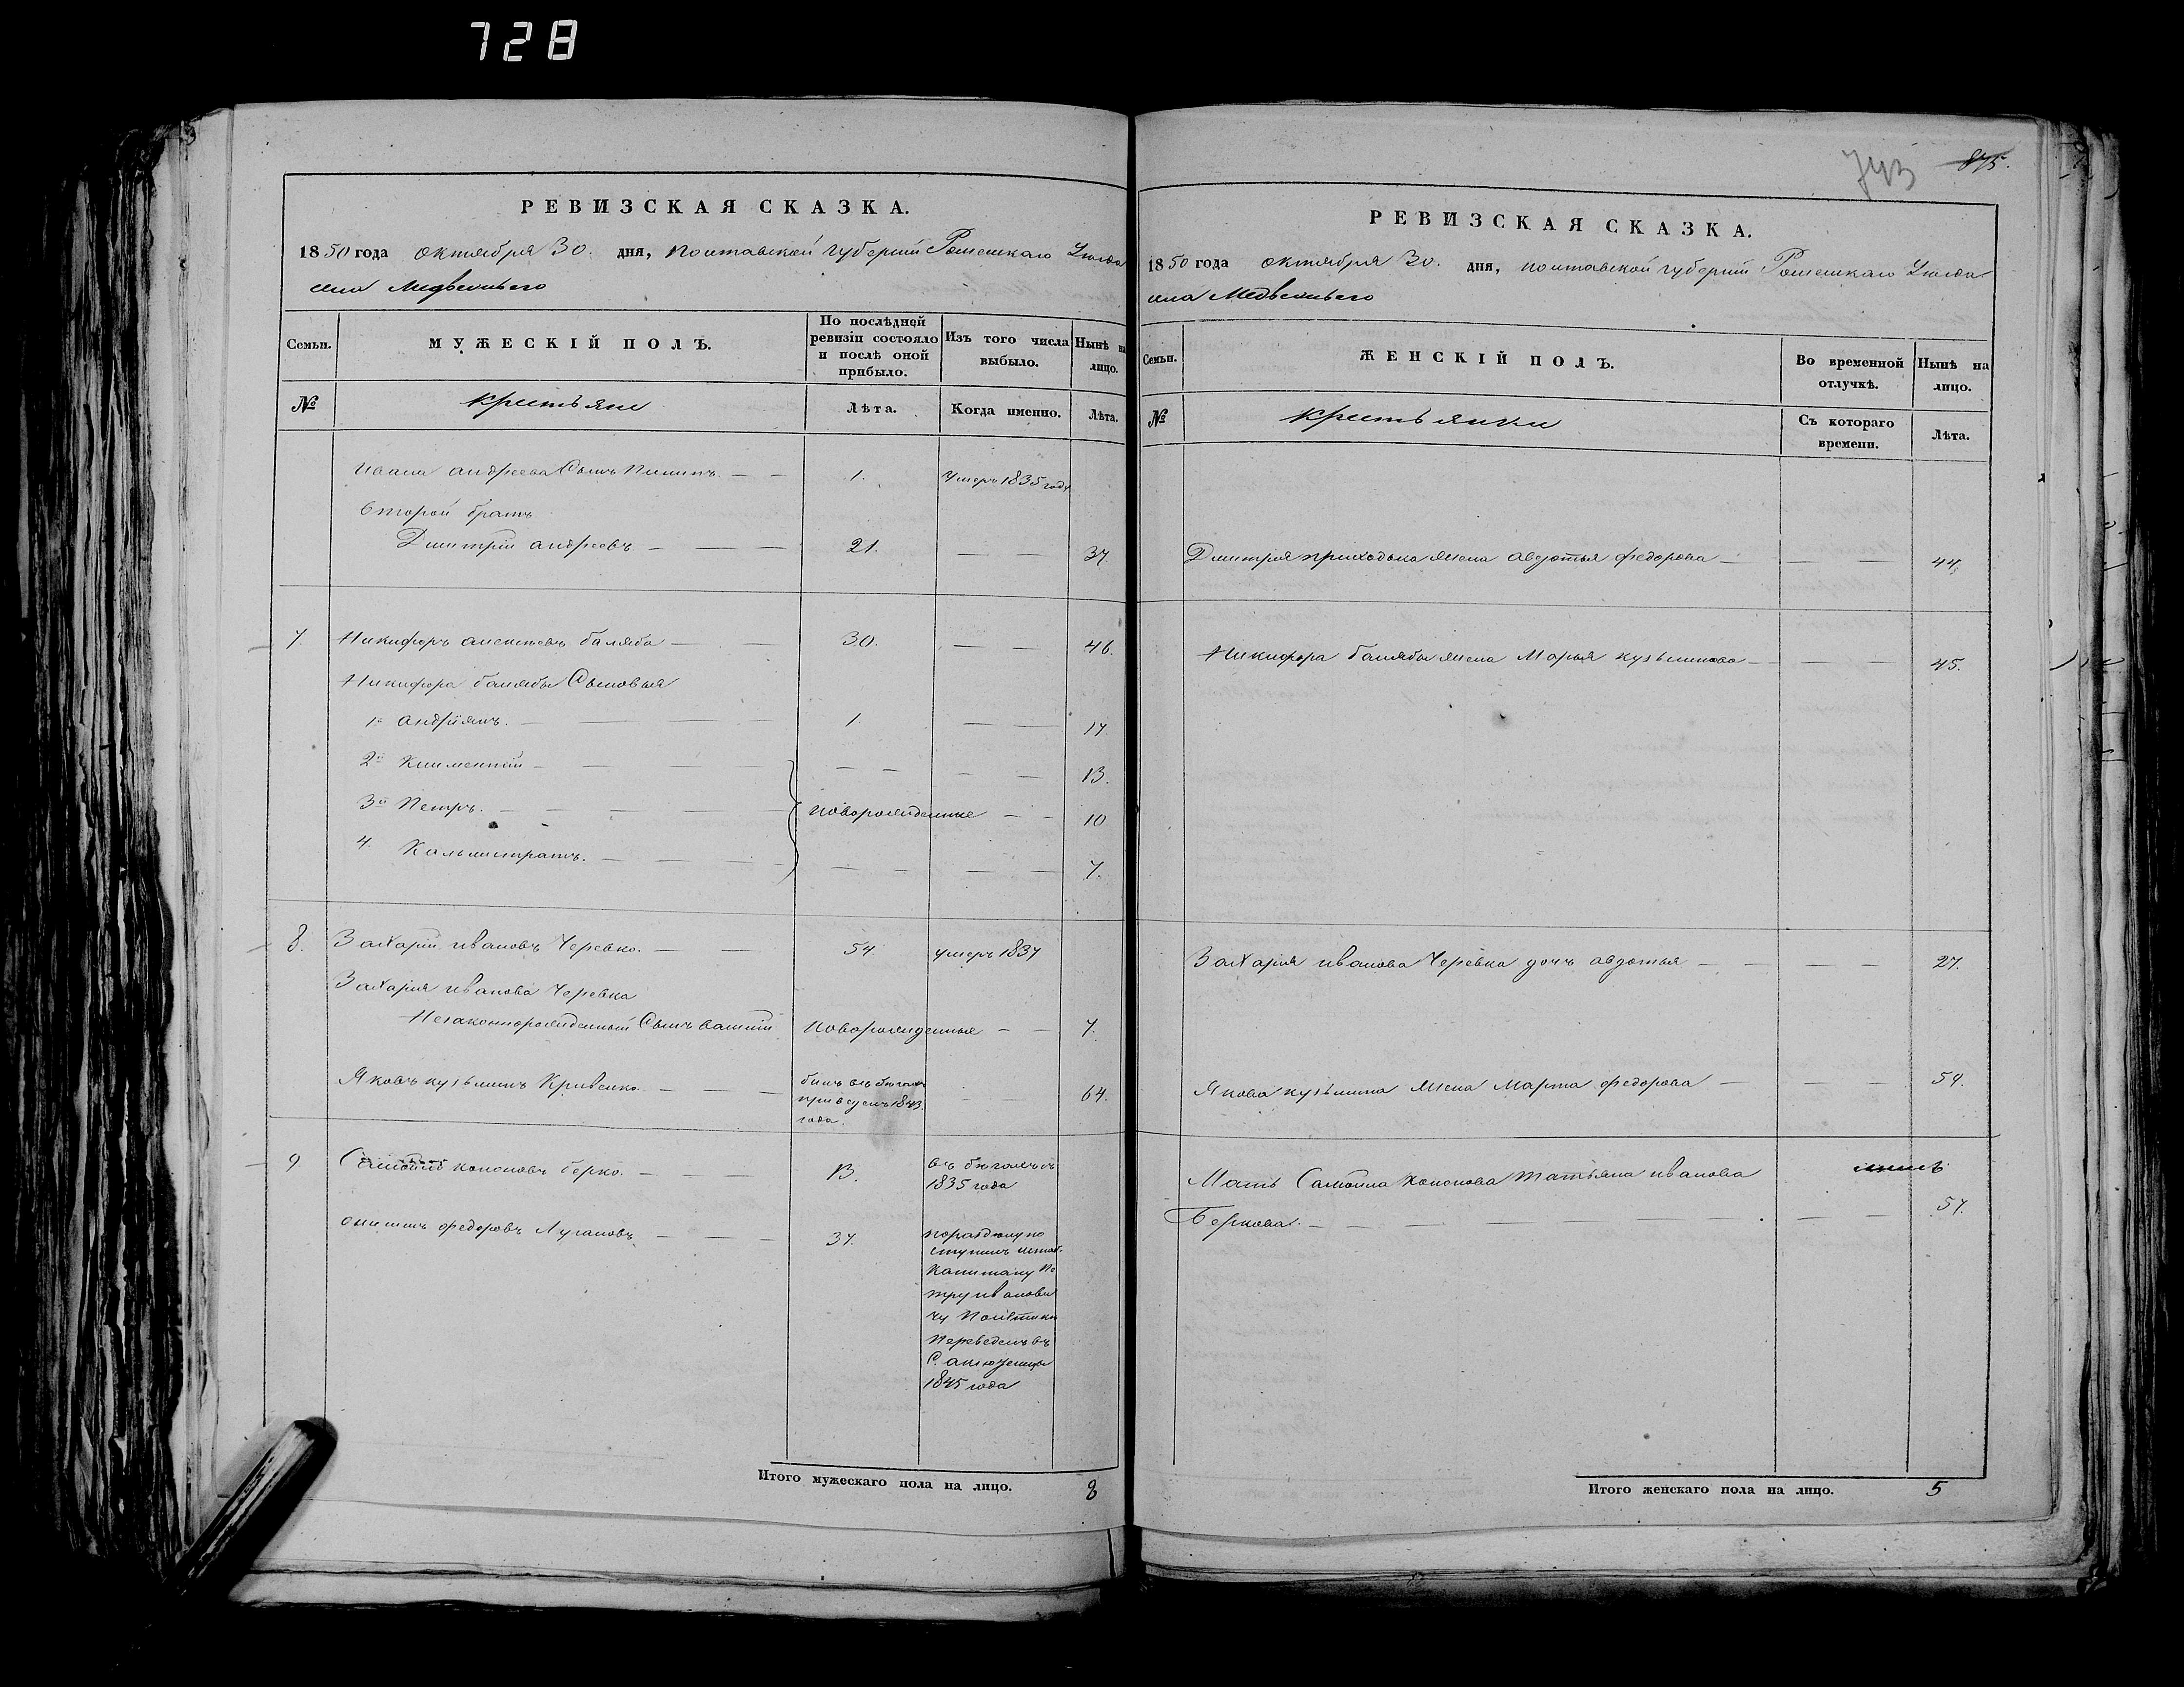 728
РЕВИЗСКАЯ СКАЗКА.
1850 года октября 30. дня, Полтавской губерніи Роменскаго Уѣзда
села Медвежьего
Семьи.
МУЖЕСКІЙ ПОЛЪ.
По послѣдней ревизіи состояло и послѣ оной прибыло.
Изъ того числа выбыло.
Нынѣ на лицо.
№
крестьяне
Лѣта.
Когда именно.
Лѣта.
Ивана андреева Сынъ — — 1. Умеръ 1835 году
второй братъ
Дмитрій андреевъ — — — 21. — — 37
7. Никифоръ алексѣевъ баляба — — 30. — — 46.
Никифора балябы Сыновья
1й андріянъ. — — — 1. — — 17
2й Климентій — — — — — — — 13.
3й Петръ. — — — — новорожденные — — 10
4. Калистратъ. — — — — — — — 7.
8. Захарій ивановъ Черевко. — — 54 умеръ 1837
Захарія иванова Черевка
Незаконнорожденный Сынъ новорожденныя — — 7.
Яковъ кузьминъ Кривенко. — — — былъ въ бегахъ — — 64.
приведенъ 1843.
года.
9 кононовъ берко. — — — 13. въ бѣгахъ съ
1835 года
онисимъ федоровъ Лугановъ — — — 37. по раздѣлу по
ступилъ штаб.
Капитану Пе
тру иванови
чу
Переведенъ въ
С.
1845 года
Итого мужескаго пола на лицо. 8
743 875.
РЕВИЗСКАЯ СКАЗКА.
1850 года октября 30. дня, полтавской губерніи Роменскаго Уѣзда
села Медвежьего
Семьи.
ЖЕНСКІЙ ПОЛЪ.
Во временной отлучкѣ.
Нынѣ на лицо.
№
крестьянки
Съ котораго времени.
Лѣта.
Дмитрія приходька жена авдотья федорова — — — 44
Никифора балябы жена Марья кузьминова — — — 45.
Захарія иванова Черевка дочь авдотья — — — — 27.
Якова кузьмина жена Марта федорова — — — 54.
Мать Самойла кононова татьяна иванова
Беркова. — — — — — — — 57.
Итого женскаго пола на лицо. 5